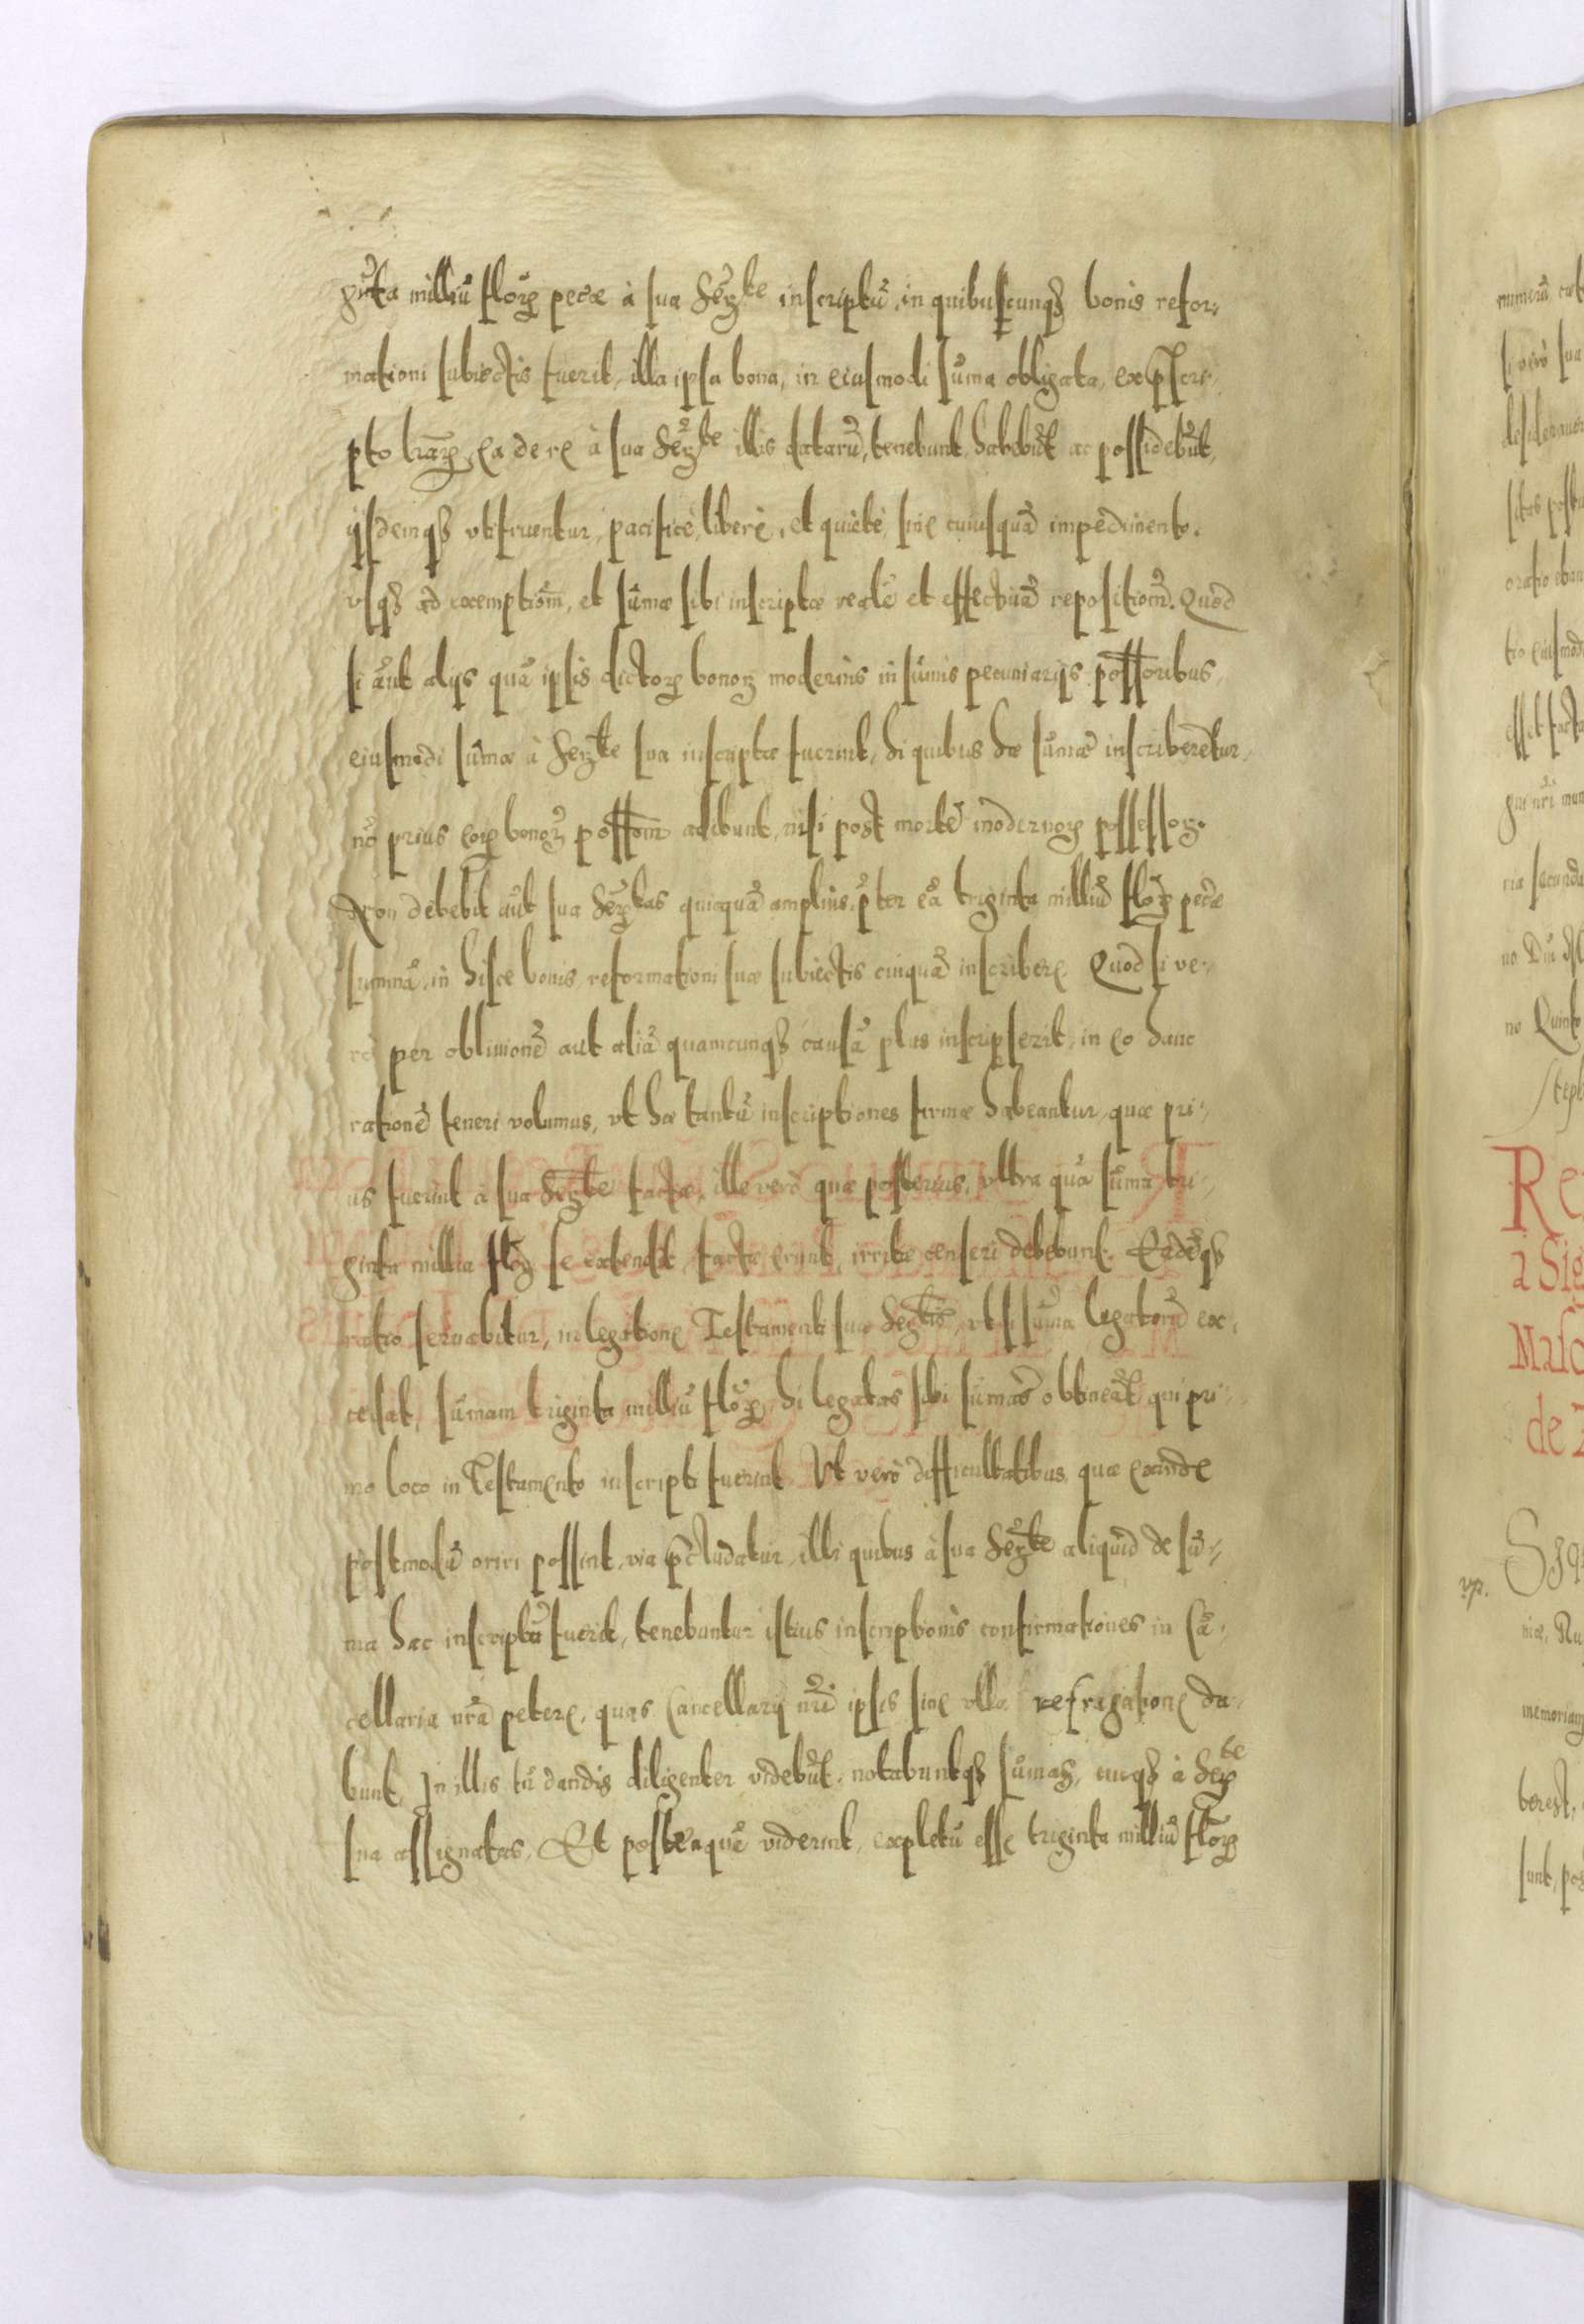 gīta milliū florꝝ pecæ à sua Serꝗte inscriptū, in quibuscunqꝫ bonis refor-
mationi subiectis fuerit, illa ipsa bona, in eiusmodi sūma obligata, ex pscri-
pto lrārꝝ, ea de re à sua Serte illis datarū, tenebunt, habebūt ac possidebūt,
ijsdemqꝫ utifruentur, pacificè, liberè, et quietè, sine cuiusquā impedimento.
usqꝫ ad exemptionē, et sūmæ sibi inscriptæ realē et effectiuā repositionē. Quod
si aūt alijs quā ipsis dictorꝝ bonorꝝ modernis in sūmis pecuniarijs possoribus,
eiusmodi sūmæ à Serte sua inscriptæ fuerint, hi quibus hæ sūmæ inscriberētur
nō prius eorꝝ bonorꝝ possionē adibunt, nisi post mortē modernorꝝ possessorꝝ.
Non debebit aūt sua Sertas quicquā amplius, pter eā triginta milliū florꝝ pecæ
summā, in hisce bonis reformationi suæ subiectis cuiquā inscribere. Quod si ve-
rò per obliuionē aut aliā quamcunqꝫ causā plus inscripserit, in eo hanc
rationē teneri volumus, ut hæ tantū inscriptiones firmæ habeantur, quæ pri-
us fuerint à sua Serte factæ, illæ verò quæ posterius, ultra quā sūma tri-
ginta millia florꝝ se extendit, factæ erunt, irritæ censeri debebunt. Eadēqꝫ
ratio seruabitur, in legatione Testamenti suæ Sertis, ut si sūma legatorū ex-
cedat, sūmam triginta milliū florꝝ, hi legatas sibi sūmas obtineāt, qui pri-
mo loco in Testamento inscripti fuerint. Ut verò difficultatibus, quæ exinde
postmodū oriri possint, via pcludatur, illi quibus à sua Serte aliquid de sū-
ma hac inscriptū fuerit, tenebuntur istius inscriptionis confirmationes in Cā-
cellaria nrā petere, quas Cancellarij nrī ipsis sine ulla refragatione da-
bunt. In illis tū dandis diligenter videbūt, notabuntqꝫ sūmas, cuiqꝫ à Serte
sua assignatas. Et posteaquā viderint, expletū esse triginta milliū florꝝ